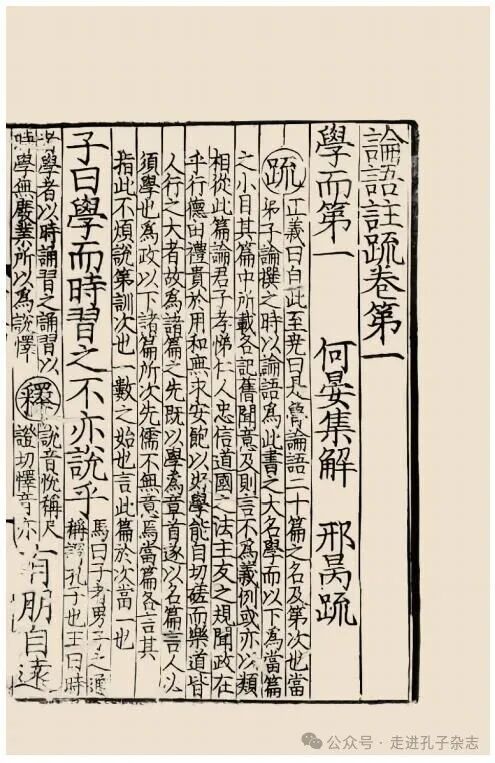 論語註疏卷第一
學而第一　何晏集解　邢昺疏
疏 正義曰自此至堯曰是魯論語二十篇之名及第次也當
弟子論撰之時以論語為此書之大名學而以下為當篇
之小目其篇中所載各記舊聞意及則言不為義例或亦以類
相從此篇論君子孝悌仁人忠信道國之法主友之規聞政在
乎行德由禮貴於用和無求安飽以好學能自切磋而樂道皆
人行之大者故為諸篇之先既以學為章首遂以名篇言人必
須學也為政以下諸篇所次先儒不無意焉當篇各言其
指此不煩說第訓次也一數之始也言此篇於次當一也
子曰學而時習之不亦說乎 馬曰子者男子之通
稱謂孔子也王曰時
學者以時誦習之誦習以
時學無廢業所以為說懌 釋 說音悅稱尺
證切懌音亦 有朋自遠
公众号 · 走进孔子杂志